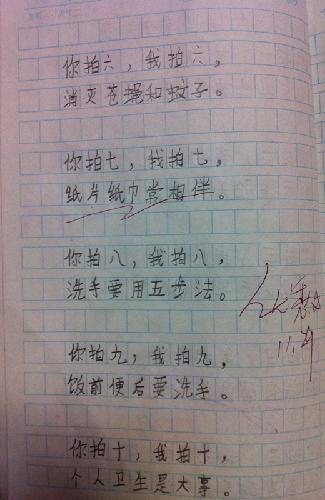 你拍六，我拍六，
消灭苍蝇和蚊子。
你拍七，我拍七，
纸片纸巾常相伴。
你拍八，我拍八，
洗手要用五步法。
你拍九，我拍九，
饭前便后要洗手。
你拍十，我拍十，
个人卫生是大事。